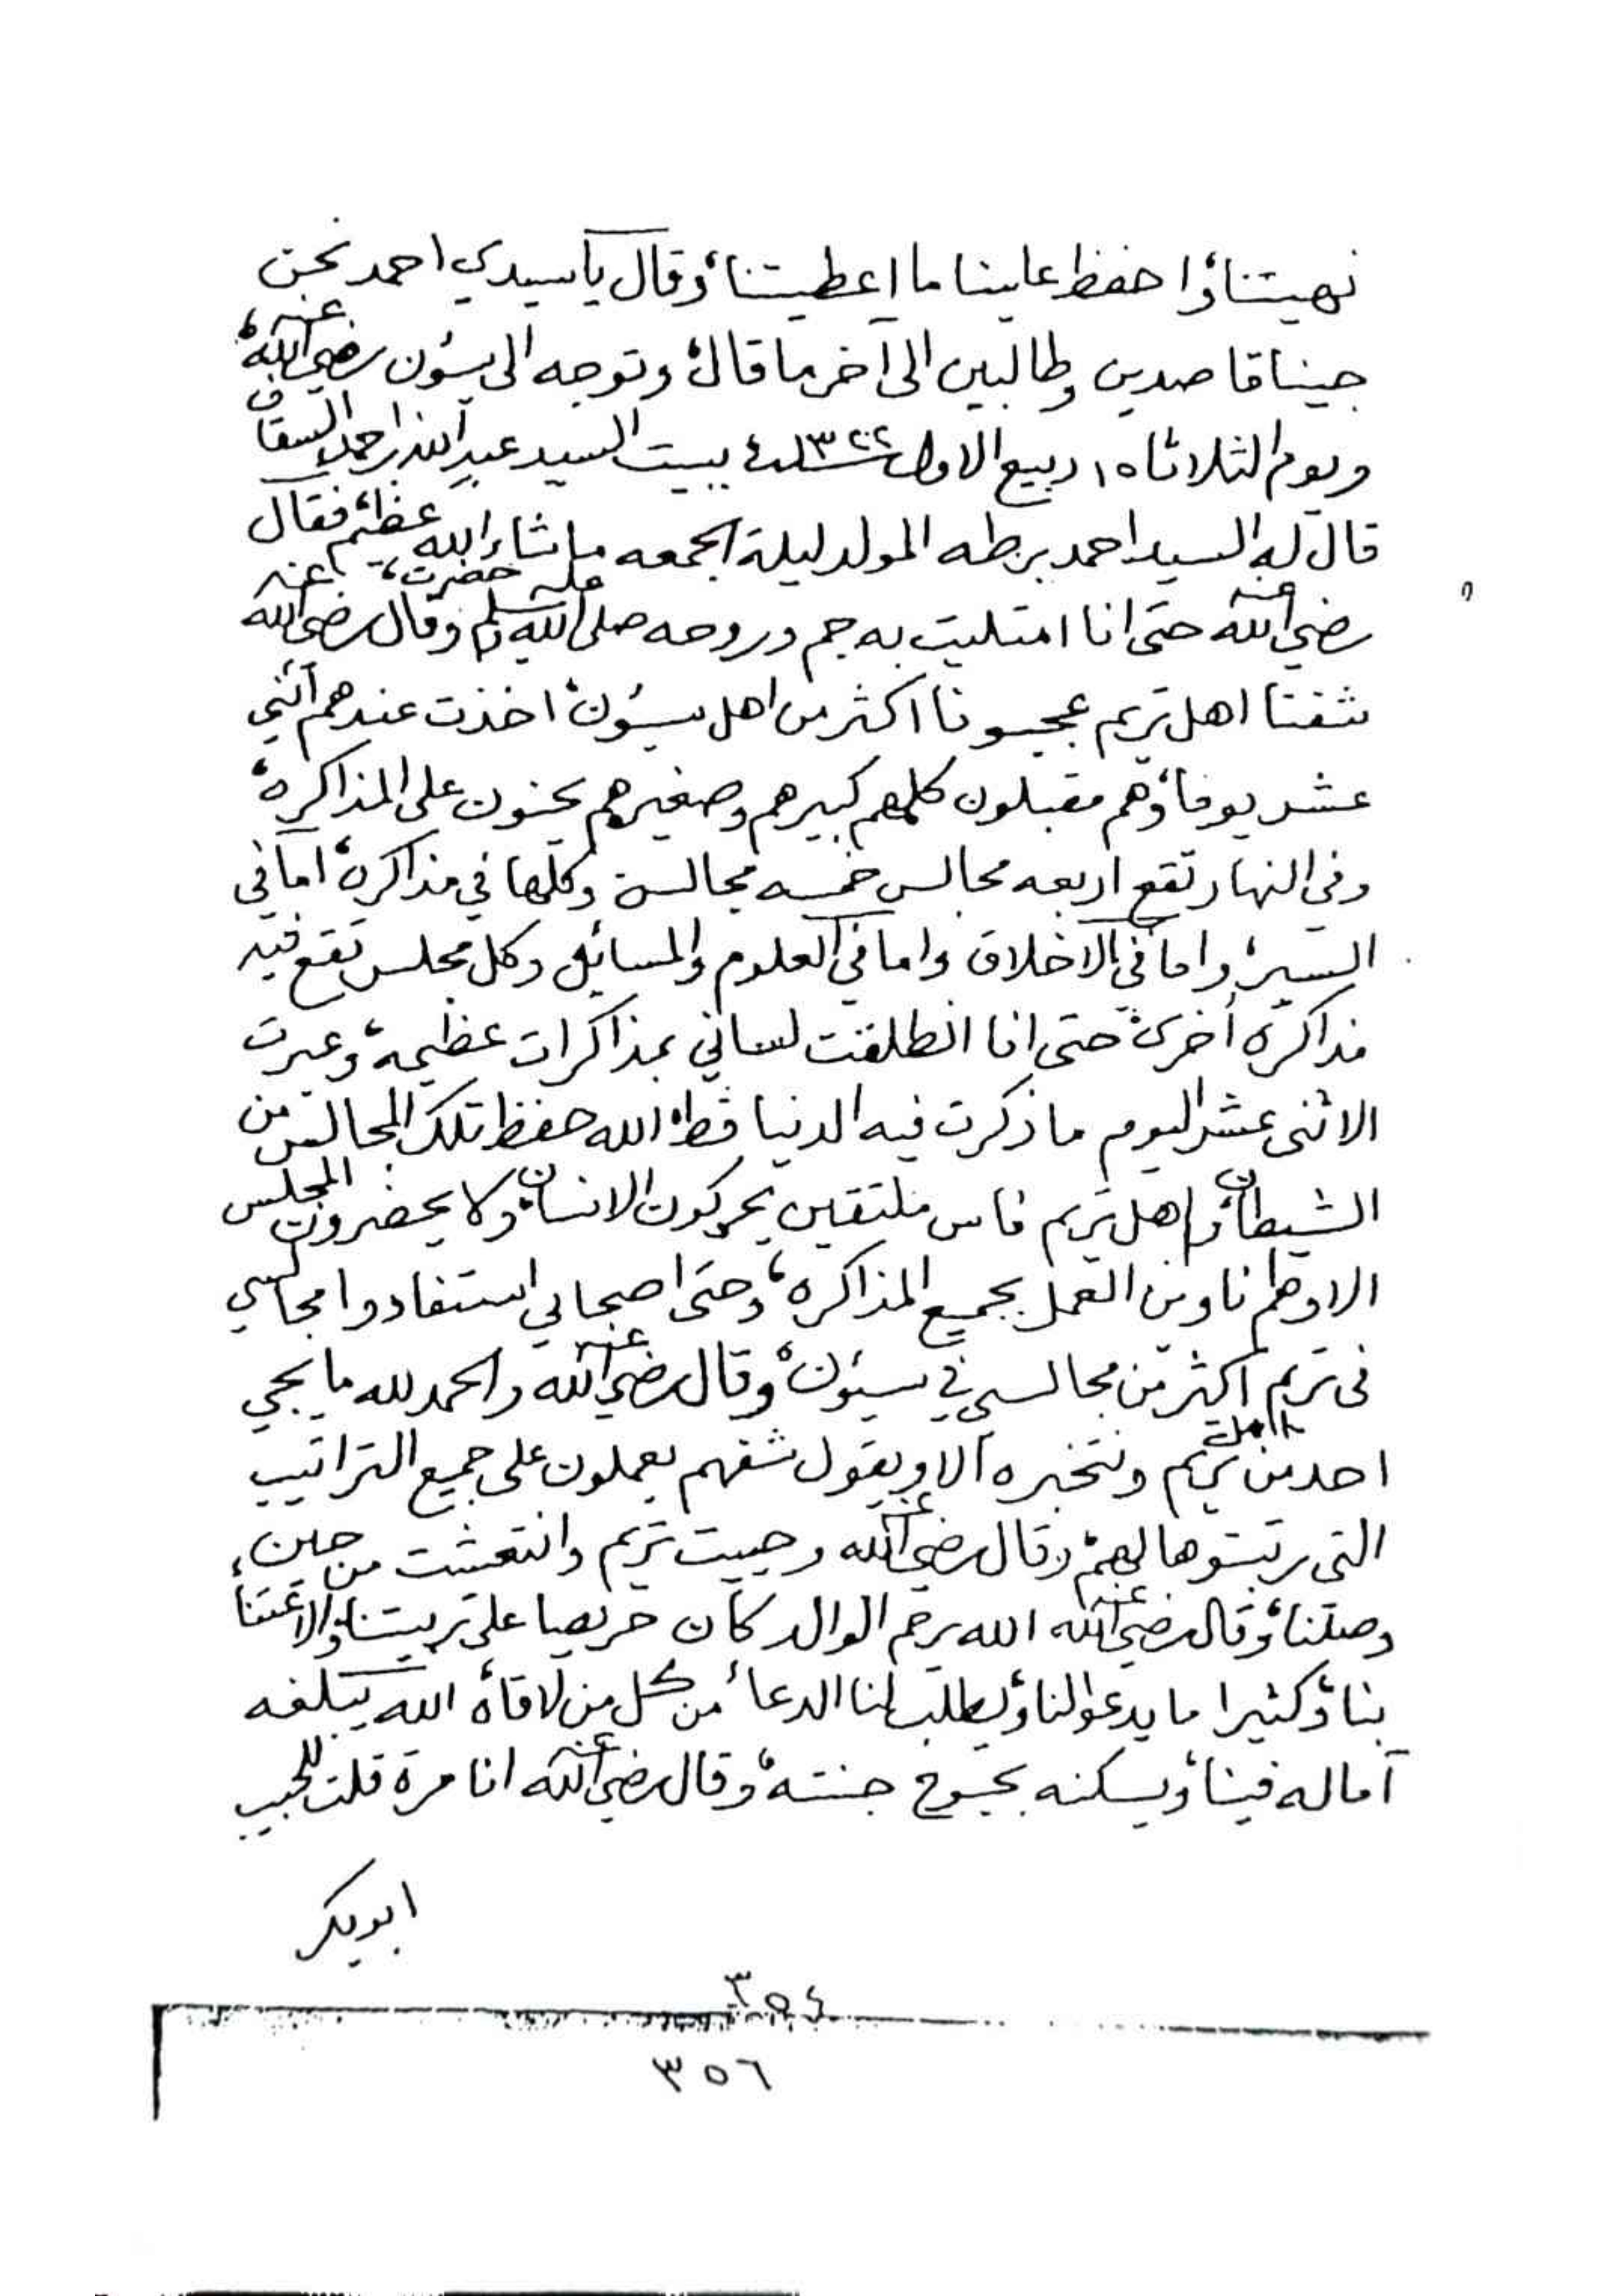 نهيتنا، واحفظ علينا ما اعطيتنا، وقال يا سيدي احمد نحن
جينا قاصدين وطالبين الى آخر ما قال، وتوجه الى سيؤن رضي الله عنه،
ويوم الثلاثاء ١٥ ربيع الاول سنة ١٣٢٢ ببيت السيد عبدالله بن احمد السقاف
قال له السيد احمد بن طه المولد ليلة الجمعه ما شاء الله عظيم، فقال
رضي الله عنه حتى انا امتليت به جم وروحه صلى الله عليه وسلم حضرت، وقال رضي الله عنه
شفنا اهل تريم عجبونا اكثر من اهل سيؤن، اخذت عندهم اثني
عشر يوما، وهم مقبلون كلهم كبيرهم وصغيرهم يحنون على المذاكره،
وفي النهار تقع اربعه مجالس خمسه مجالس، وكلها في مذاكرة، اما في
السير، واما في الاخلاق واما في العلوم والمسائل وكل مجلس تقع فيه
مذاكره أخرى، حتى انا انطلقت لساني بمذاكرات عظيمه، وعبرت
الاثنى عشر اليوم ما ذكرت فيه الدنيا قط، الله حفظ تلك المجالس من
الشيطان، واهل تريم ناس متلقين يحركون الانسان، ولا يحضرون المجلس
الا وهم ناوين العمل بجميع المذاكره، وحتى اصحابي استفادوا مجالسي
في تريم اكثر من مجالسي في سيؤن، وقال رضي الله عنه والحمد لله ما يجي
احد من اهل تريم ونتخبره الا ويقول شفهم يعملون على جميع التراتيب
التي رتبتوها لهم، وقال رضي الله عنه وحييت تريم وانتعشت من حين،
وصلنا، وقال رضي الله عنه الله يرحم الوالد كان حريصا على تربيتنا، والاعتنا
بنا، وكثيرا ما يدعو لنا، ويطلب لنا الدعاء من كل من لاقاه، الله يبلغه
آماله فينا، ويسكنه بحبوح جنته، وقال رضي الله عنه انا مرة قلت للحبيب
ابوبكر
٣٥٤
٣٥٦